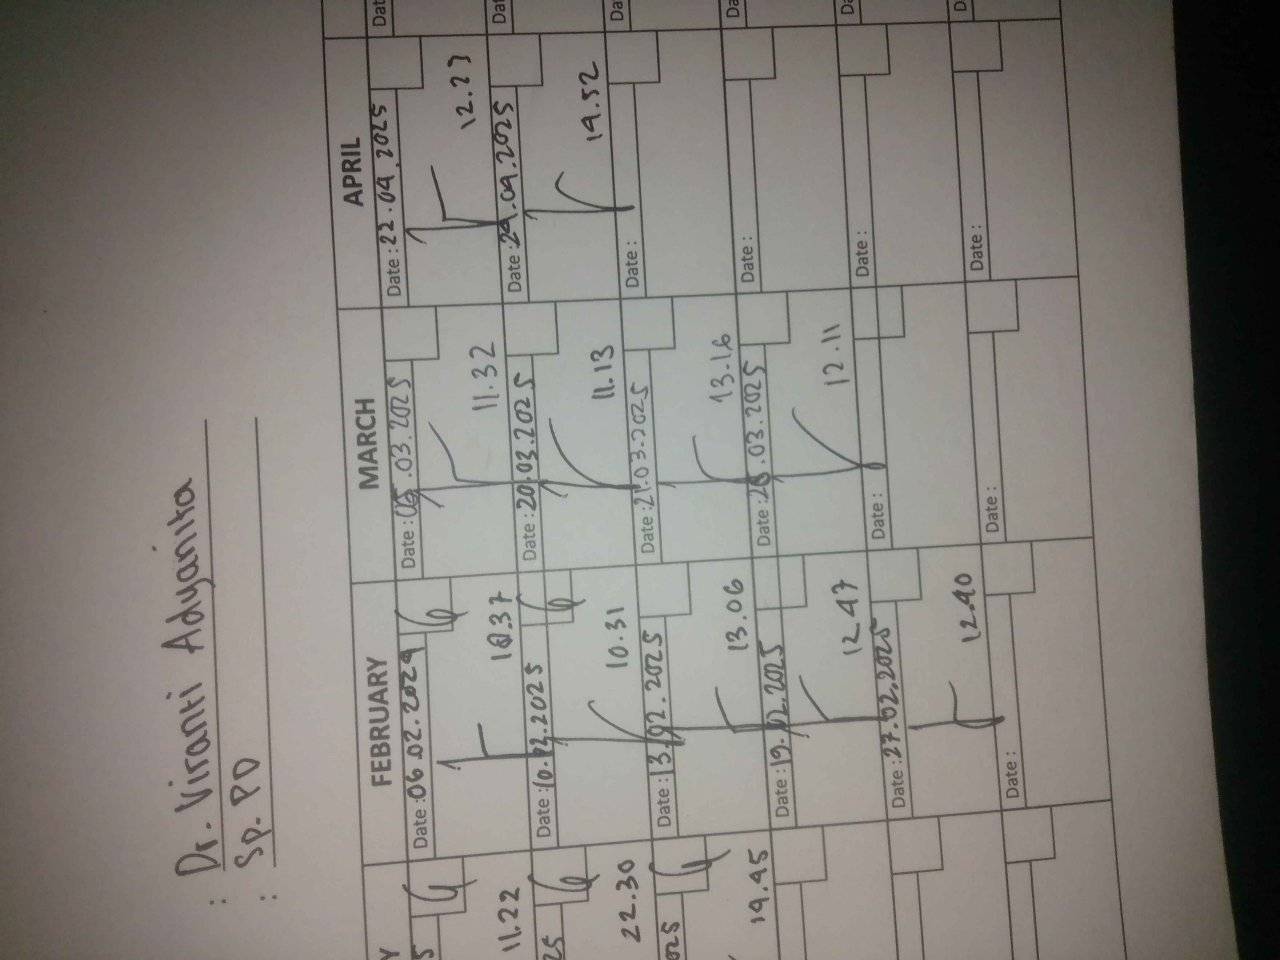 : Dr. Viranti Adyanita
: Sp. PD
FEBRUARY
MARCH
APRIL
11.22
22.30
025
19.45
Date : 06.02.2024
10.37
Date : 10.02.2025
10.31
Date : 13.02.2025
13.06
Date : 19.02.2025
12.47
Date : 27.02.2025
12.40
Date :
Date : 05.03.2025
11.32
Date : 20.03.2025
11.13
Date : 21.03.2025
13.16
Date : 28.03.2025
12.11
Date :
Date :
Date : 22.04.2025
12.23
Date : 29.04.2025
14.52
Date :
Date :
Date :
Date :